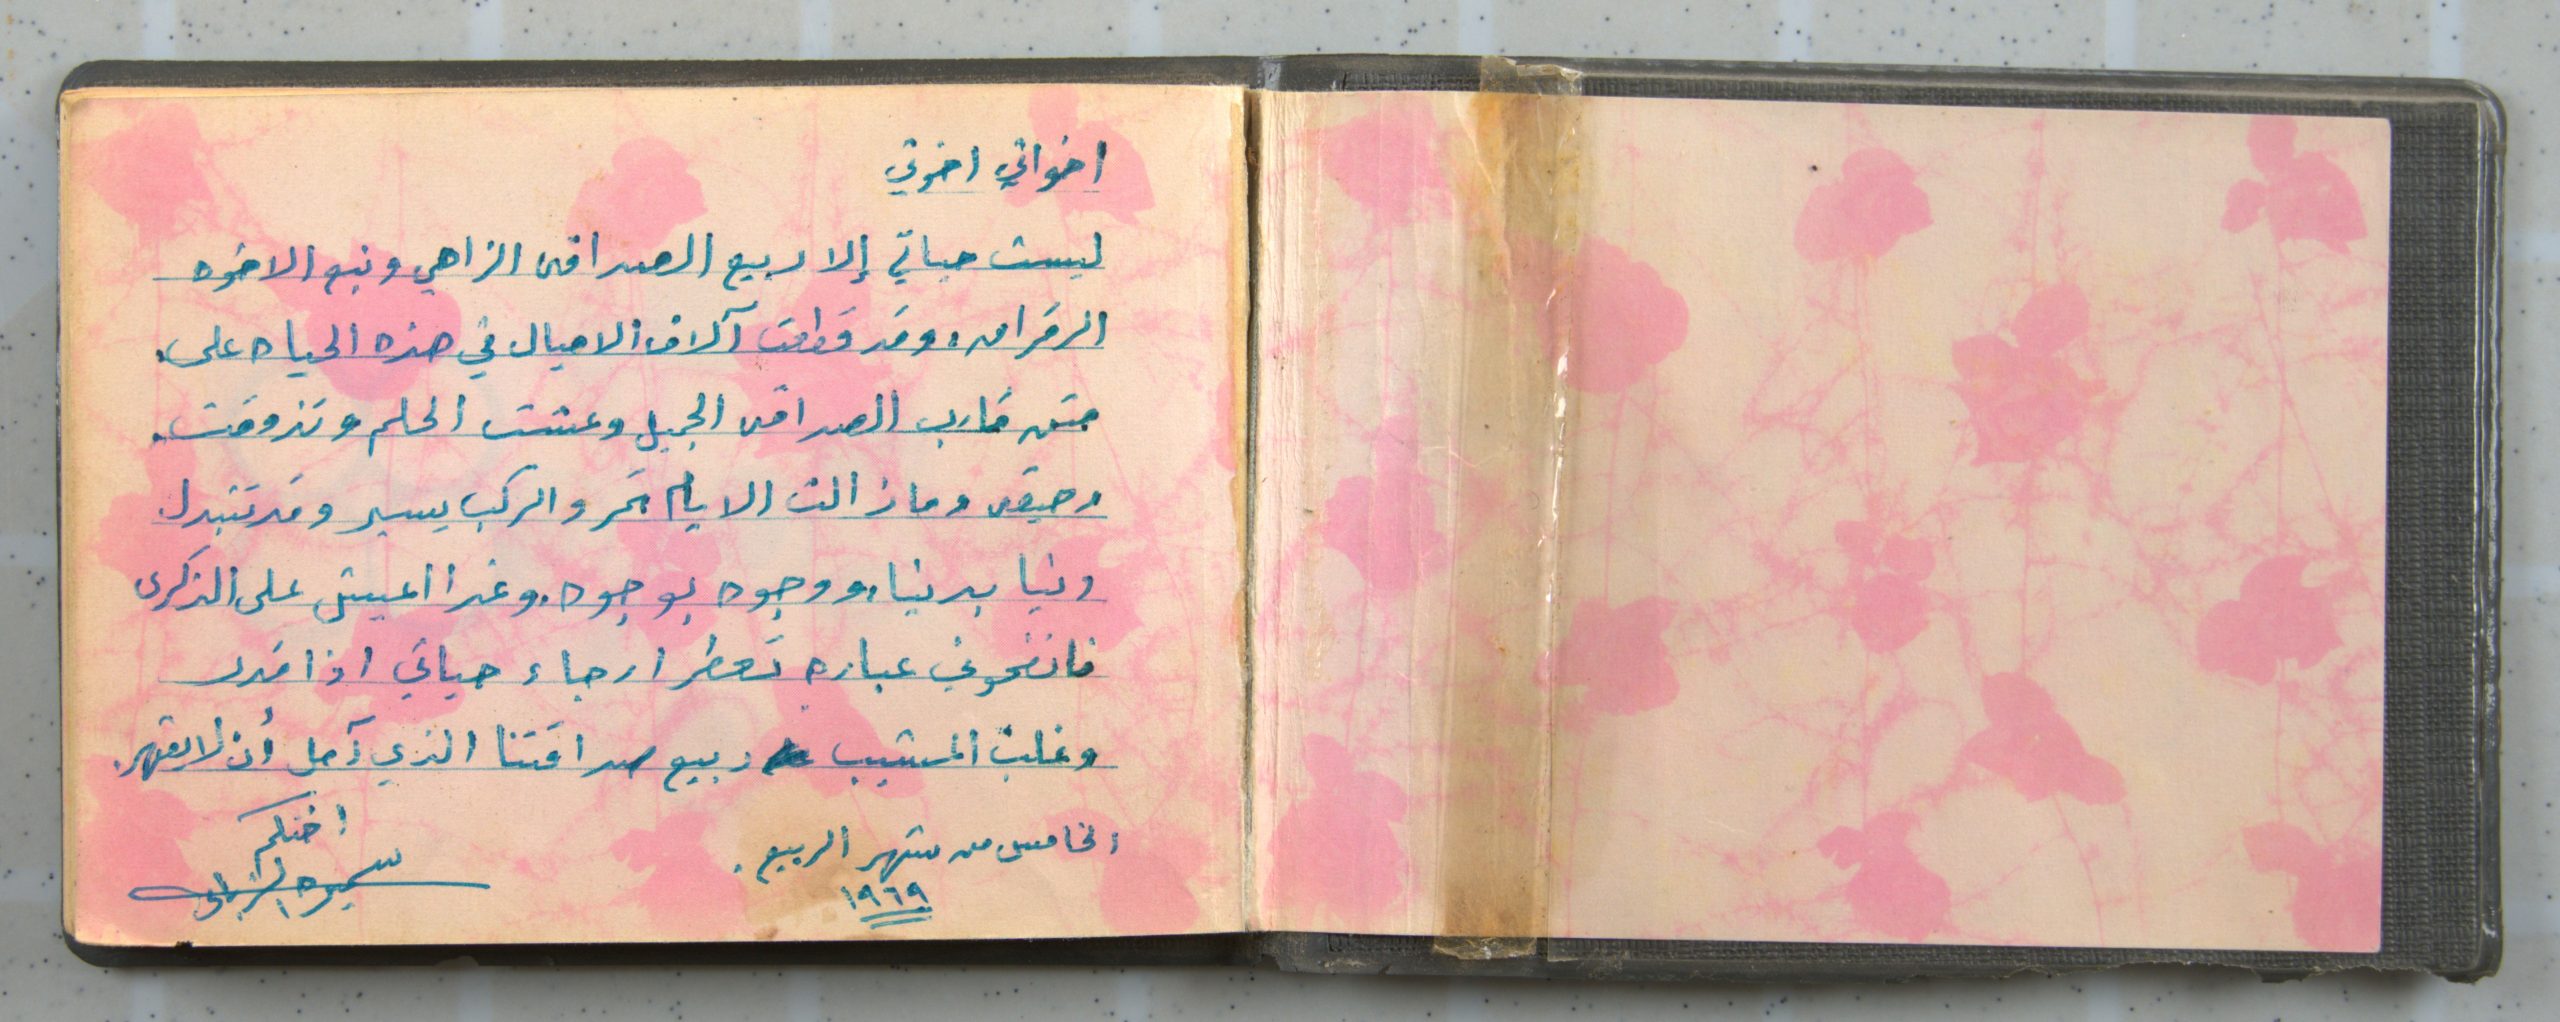 اخواتي اخوتي
ليست حياتي إلا ربيع الصداقه الزاهي ونبع الاخوه
الرقراق. وقد قطعت آلاف الاميال في هذه الحياه على.
متن قارب الصداقه الجميل وعشت الحلم وتذوقت.
رحيقه ومازالت الايام تمر والركب يسير وقد تتبدل
دنيا بدنيا. ووجوه بوجوه. وغدا العيش على الذكرى
فانفحوني عباره تعطر ارجاء حياتي اذا قدر
وغلب المشيب ربيع صداقتنا الذي آمل أن لا يقهر.
اختكم
سميره
الخامس من شهر الربيع.
١٩٦٩